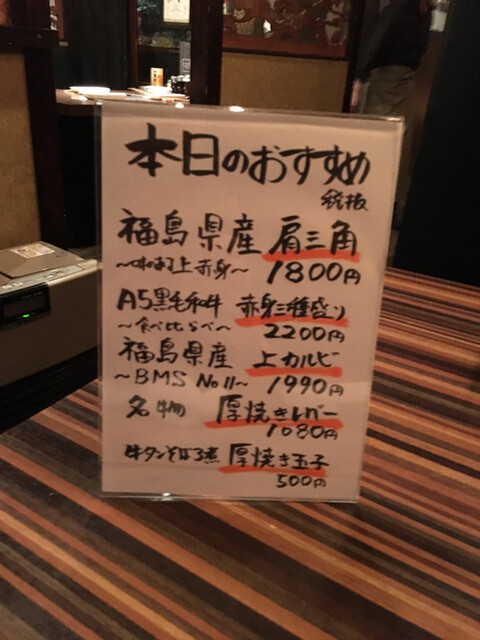 本日のおすすめ
税抜
福島県産 肩三角
上赤身～ 1800円
A5黒毛和牛 赤身三種盛り
～食べ比らべ～ 2200円
福島県産 上カルビ
～BMS No11～ 1990円
名物 厚焼きレバー
1080円
牛タンそぼろ煮 厚焼き玉子
500円